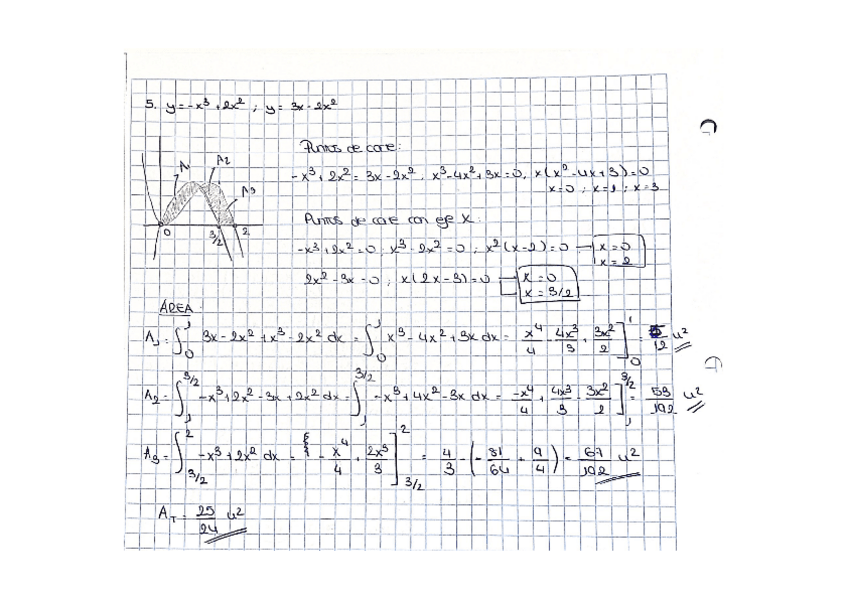 5. y = -x³ + 2x² ; y = 3x - 2x²
Puntos de corte:
-x³ + 2x² = 3x - 2x² ; x³ - 4x² + 3x = 0, x(x² - 4x + 3) = 0
x=0 ; x=1 ; x=3
A₁ A2
A3
0 3/2 2
Puntos de corte con eje X:
-x³ + 2x² = 0 ; x³ - 2x² = 0 ; x²(x-2) = 0 → x = 0
x = 2
2x² - 3x = 0 ; x(2x-3) = 0 → x = 0
x = 3/2
ÁREA:
A₁ = ∫₀¹ 3x - 2x² + x³ - 2x² dx = ∫₀¹ x³ - 4x² + 3x dx = x⁴/4 - 4x³/3 + 3x²/2 ]₀¹ = 5/12 u²
A₂ = ∫₁^3/2 -x³ + 2x² - 3x + 2x² dx = ∫₁^3/2 -x³ + 4x² - 3x dx = -x⁴/4 + 4x³/3 - 3x²/2 ]₁^3/2 = 53/192 u²
A₃ = ∫_3/2^2 -x³ + 2x² dx = - x⁴/4 + 2x³/3 ]_3/2^2 = 4/3 - (-81/64 + 9/4) = 67/192 u²
A_T = 25/24 u²